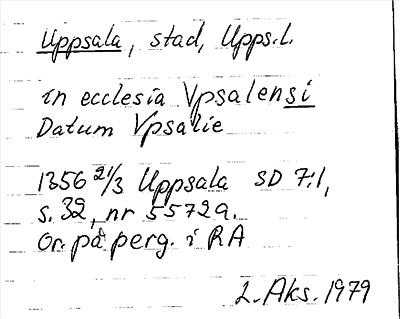 Uppsala, stad, Upps.l.
in ecclesia Vpsalensi
Datum Vpsalie
1356 21/3 Uppsala SD 7:1,
s. 32, nr 5572a.
Or. på perg. i RA
L. Aks. 1979